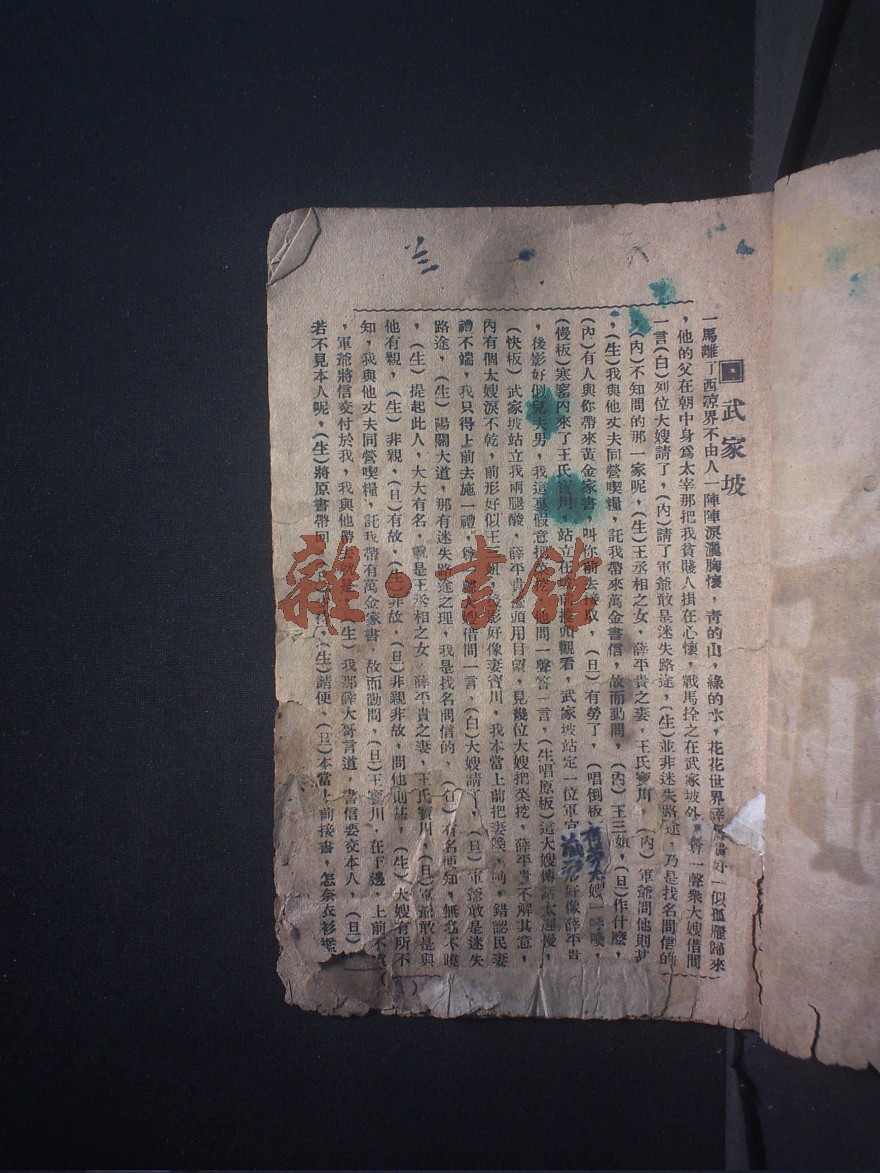 武家坡
一馬離了西涼界不由人一陣陣淚灑胸懷，青的山，綠的水，花花世界薛好一似孤雁歸來
，他的父在朝中身爲太宰那把我貧賤人掛在心懷，戰馬拴之在武家坡外，一聲衆大嫂借問
一言（白）列位大嫂請了，（內）請了軍爺敢是迷失路途，（生）並非迷失路途，乃是找名問信的
，（內）不知問的那一家呢，（生）王丞相之女，薛平貴之妻，王氏寶川，（內）軍爺問他則甚
，（生）我與他丈夫同營喫糧，託我帶來萬金書信，故而動問，（內）王三姐，（旦）作什麼，
（內）有人與你帶來黃金家書，叫你前去接取，（旦）有勞了，（唱倒板）有勞大嫂一聲喚，
（慢板）寒窰內來了王氏寶川，站立在觀看，武家坡站定一位軍官好像薛平貴
，後影好似兒夫男，我這裏假意把菜挖，他問一聲答一言，（生唱原板）這大嫂傳話太遲慢，
（快板）武家坡站立我兩腿酸，薛平貴用目望，見幾位大嫂把菜挖，薛平貴不解其意，
內有個大嫂淚不乾，前形好似王三姐，後影好像妻寶川，我本當上前把妻喚，錯認民妻
禮不端，我只得上前去施一禮，尊一聲大嫂借問一言，（白）大嫂請了，（旦）軍爺敢是迷失
路途，（生）陽關大道，那有迷失路途之理，我是找名問信的，（旦）有名便知，無名不曉
，（生）提起此人，大大有名，就是王丞相之女，薛平貴之妻，王氏寶川，（旦）軍爺敢是與
他有親，（生）非親，（旦）有故，（生）非故，（旦）非親非故，問他則甚，（生）大嫂有所不
知，我與他丈夫同營喫糧，託我帶有萬金家書，故而動問，（旦）王寶川，在下邊，上前不
，軍爺將信交付於我，我與他帶去就是，（生）我那薛大哥言道，書信要交本人，（旦）
若不見本人呢，（生）將原書帶回，（生）請便，（旦）本當上前接書，怎奈衣衫襤
雜·書館